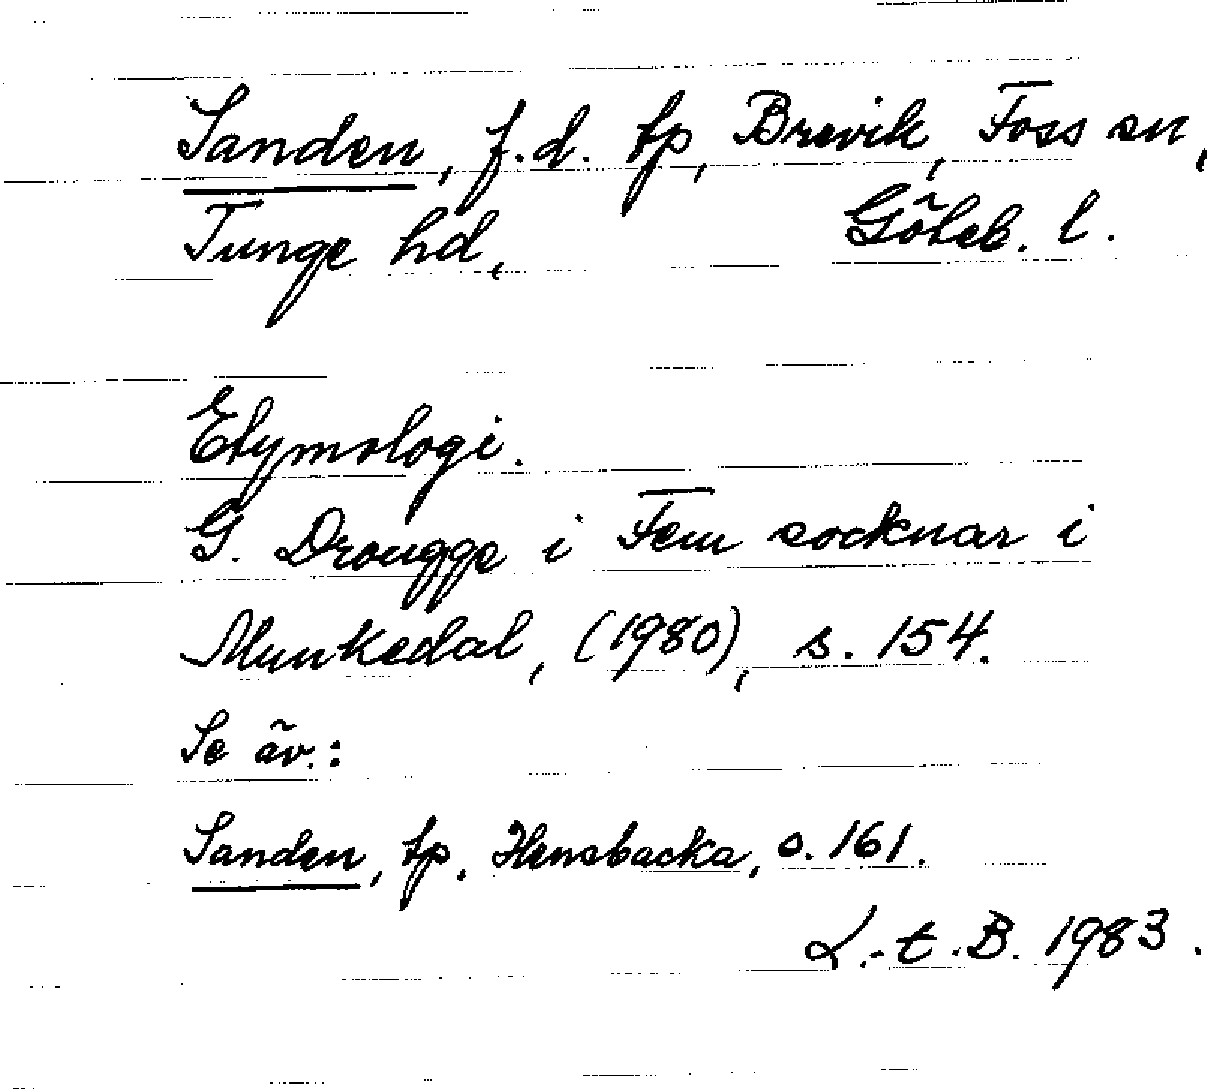 Sanden, f.d. tp, Brevik, Foss sn,
Tunge hd, Göteb. l.
Etymologi.
G. Drougge i Fem socknar i
Munkedal, (1980), s. 154.
Se äv.:
Sanden, tp, Hensbacka, s. 161.
L.-t.B. 1983.